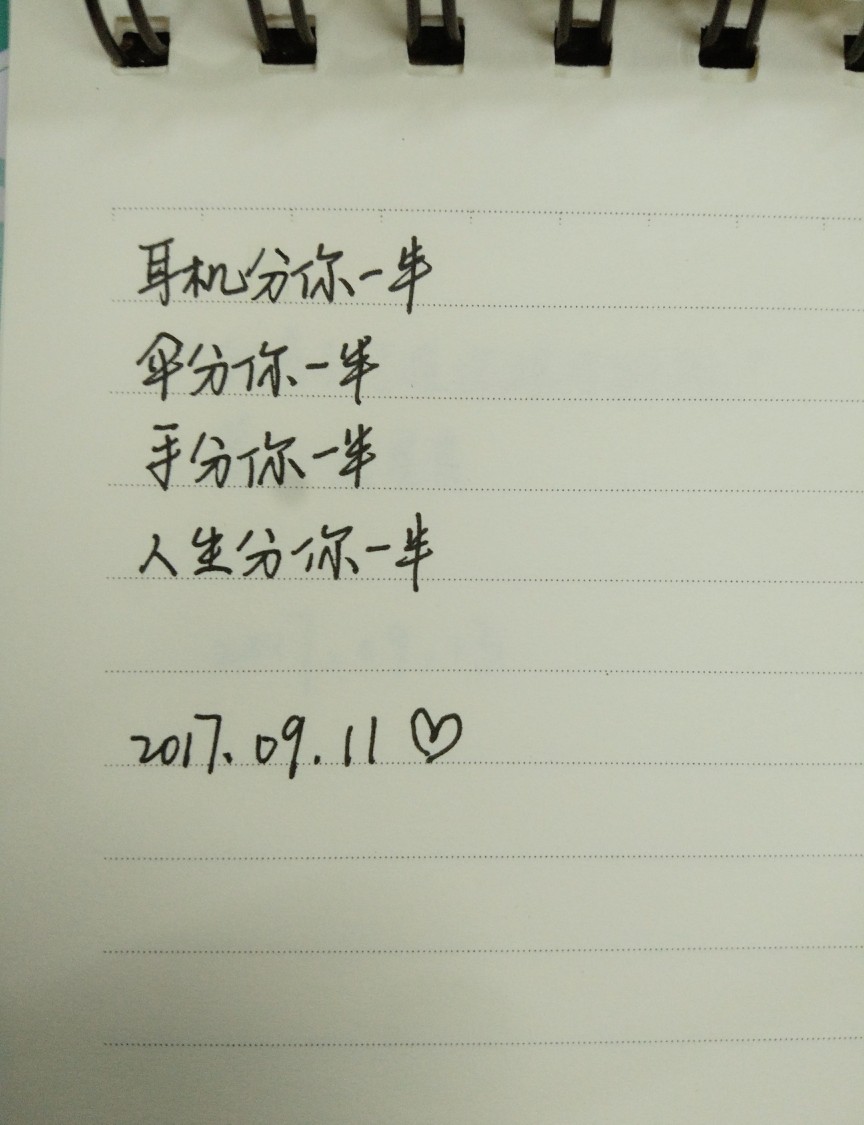 耳机分你一半
伞分你一半
手分你一半
人生分你一半
2017.09.11♡